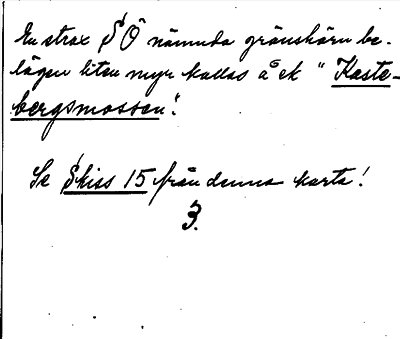 En strax S Ö nämnda gränshörn be-
lägen liten myr kallas å ek "Kaste-
bergsmossen".
Se Skiss 15 från denna karta!
3.